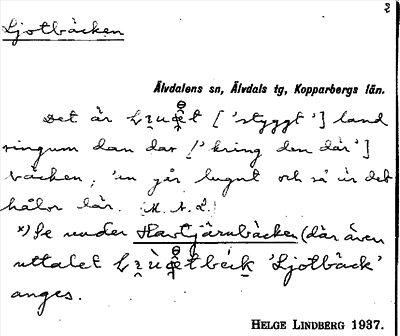 2
Ljotbäcken
Älvdalens sn, Älvdals tg, Kopparbergs län.
Det är [ 'styggt' ] land
ringum dan dar [ 'kring den där' ]
bäcken; 'un går lugnt och så är det
hålor där. M. A. L.
*) Se under Havtjärnbäcken (där även
uttalet 'Ljotbäck'
anges.
HELGE LINDBERG 1937.